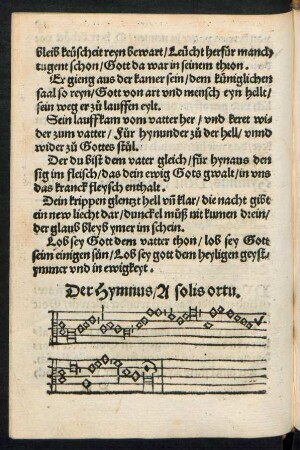 bleib keüscheit reyn bewart/ Leücht herfür manch
tugent schon/ Gott da war in seinem thron.
Er gieng aus der kamer sein/ dem küniglichen
saal so reyn/ Gott von art vnd mensch eyn hellt/
sein weg er zů lauffen eylt.
Sein lauff kam vom vatter her/ vnd keret wi
der zum vatter/ Für hynunder zů der hell/ vnnd
wider zů Gottes stůl.
Der du bist dem vater gleich/ für hynaus den
sig im fleisch/ das dein ewig Gots gwalt/ in vns
das kranck fleysch enthalt.
Dein krippen glentzt hell vñ klar/ die nacht gibt
ein new liecht dar/ dunckel můß nit kumen drein/
der glaub bleyb ymer im schein.
Lob sey Gott dem vatter thon/ lob sey Gott
seim einigen sůn/ Lob sey gott dem heyligen geyst/
ymmer vnd in ewigkeyt.
Der Hymnus/ A solis ortu.